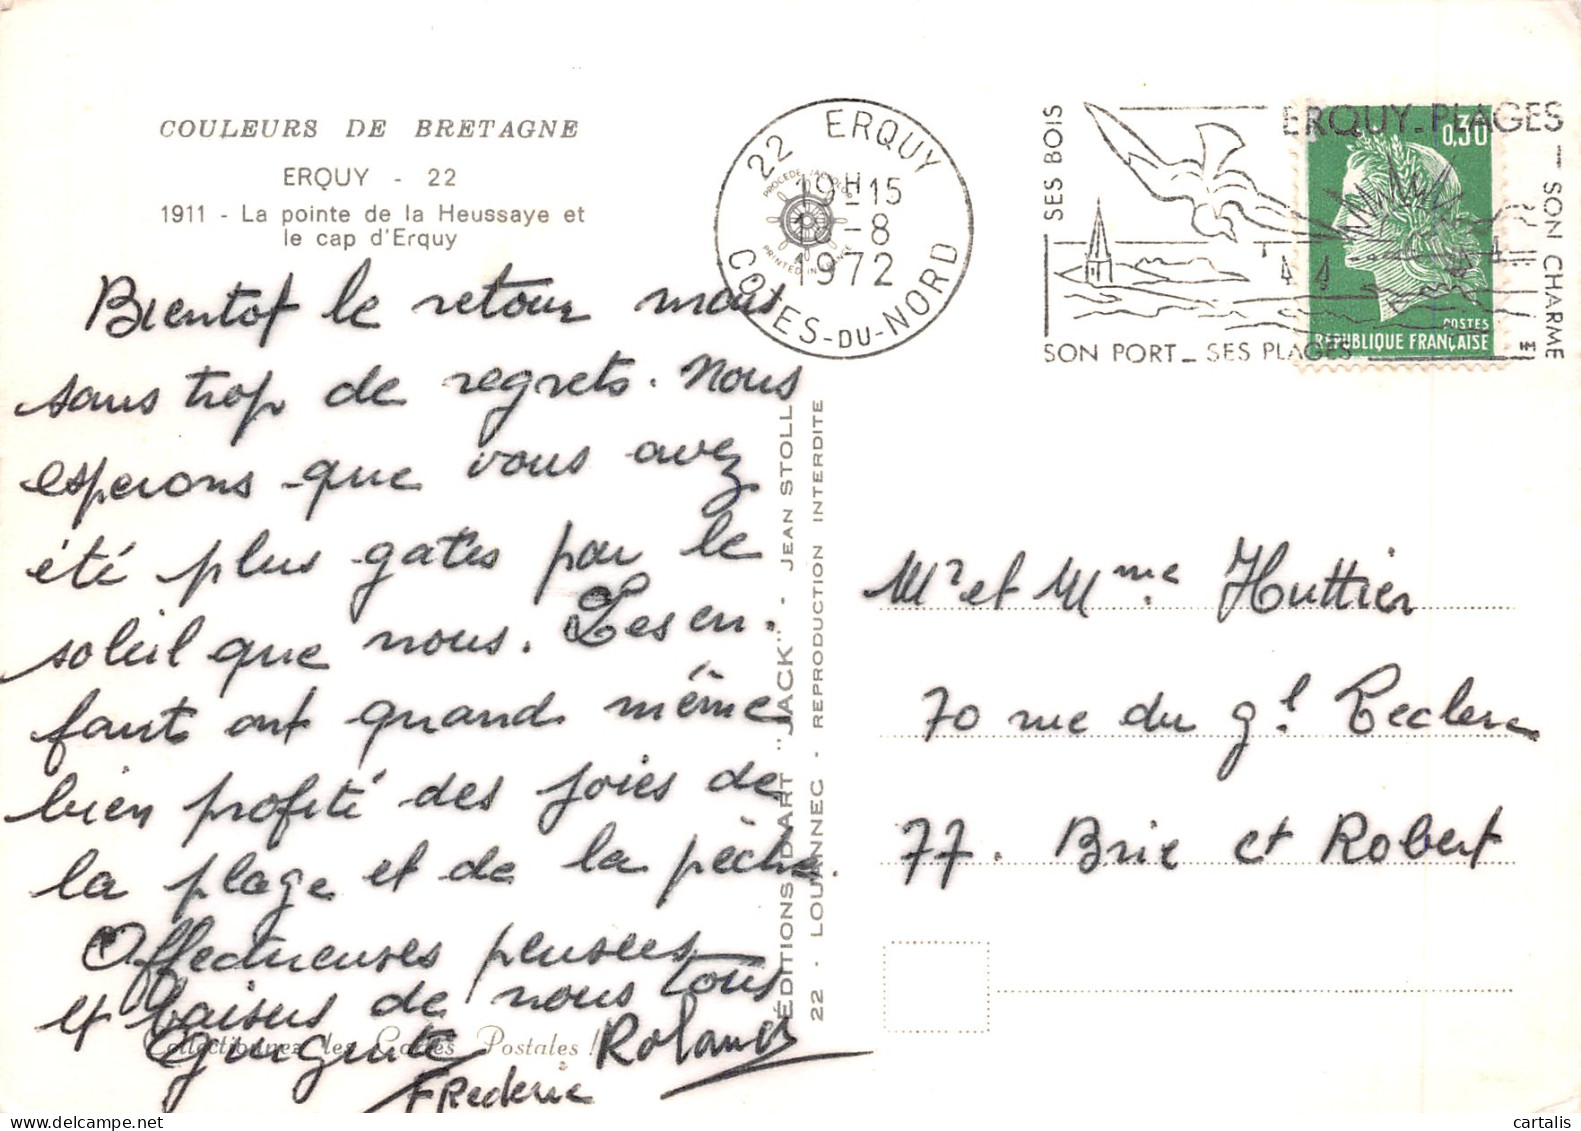 COULEURS DE BRETAGNE
ERQUY - 22
1911 - La pointe de la Heussaye et
le cap d'Erquy
Bientot le retour mais
sans trop de regrets. Nous
esperons que vous avez
été plus gatés par le
soleil que nous. Les en-
fants ont quand même
bien profité des joies de
la plage et de la pêche.
Affectueuses pensées
et baisers de nous tous
Roland
Frederic
Collectionnez les Cartes Postales !
ÉDITIONS D'ART "JACK" - JEAN STOLL
22 - LOUANNEC - REPRODUCTION INTERDITE
22 ERQUY
19H15
8
1972
COTES-DU-NORD
PRINTED IN FRANCE
ERQUY-PLAGES
SES BOIS
SON PORT - SES PLAGES
SON CHARME
0,30
POSTES
REPUBLIQUE FRANÇAISE
Mr et Mme Huttier
70 rue du gl Leclerc
77. Brie et Robert
cartalis
www.delcampe.net